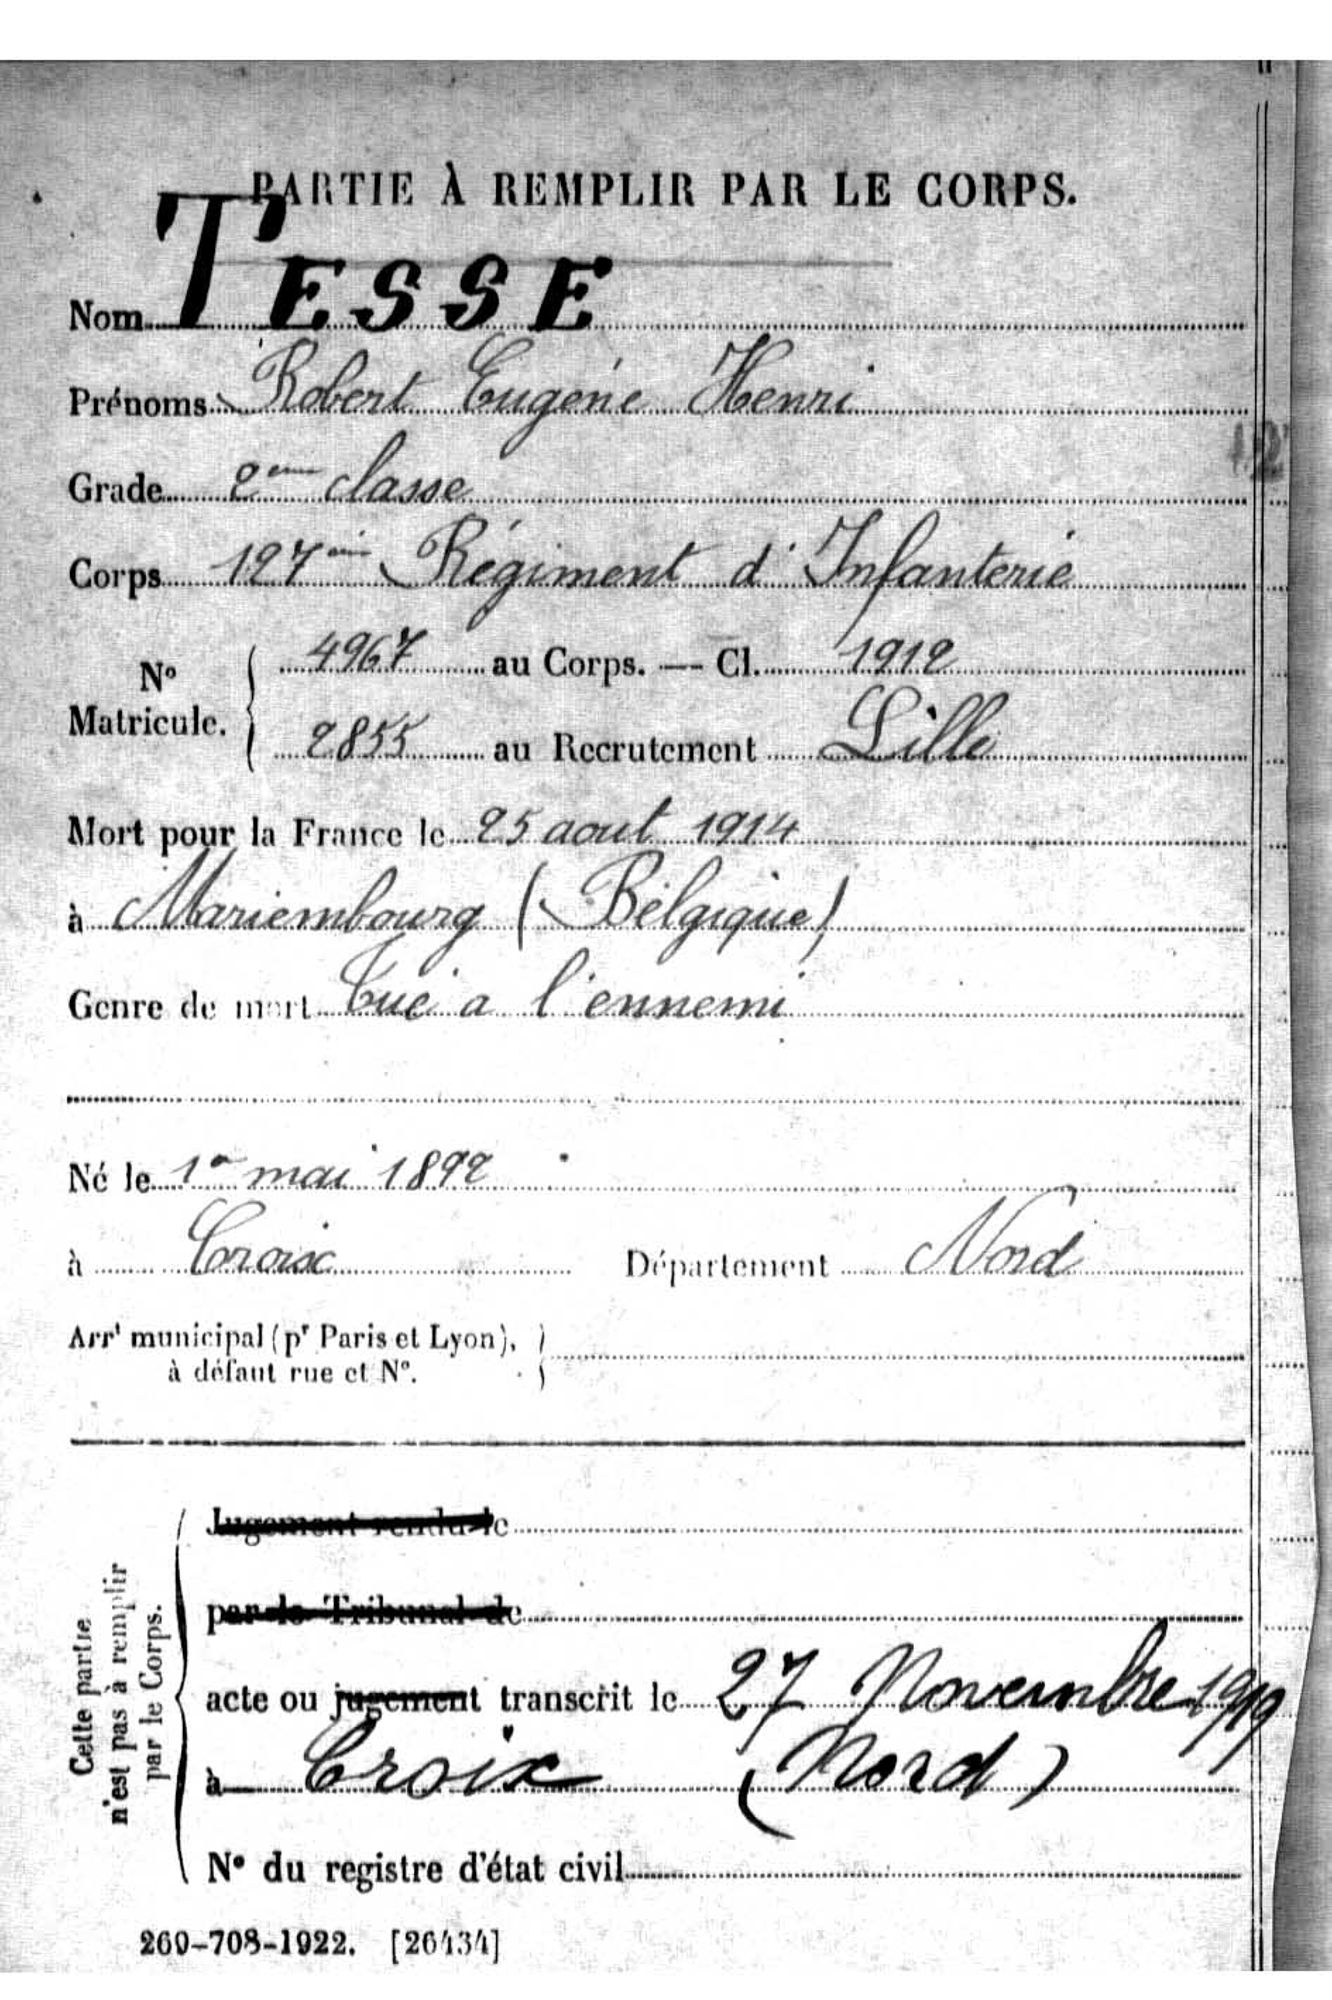 PARTIE À REMPLIR PAR LE CORPS.
Nom TESSE
Prénoms Robert Eugène Henri
Grade 2eme classe
Corps 127eme Régiment d'Infanterie
No Matricule. 4967 au Corps. — Cl. 1912
2855 au Recrutement Lille
Mort pour la France le 25 aout 1914
à Mariembourg (Belgique)
Genre de mort Tué a l'ennemi
Né le 1er mai 1892
à Croix Département Nord
Arrt municipal (pr Paris et Lyon),
à défaut rue et No.
Cette partie
n'est pas à remplir
par le Corps.
Jugement rendu le
par le Tribunal de
acte ou jugement transcrit le 27 Novembre 1919
à Croix (Nord)
No du registre d'état civil
260-708-1922. [26434]